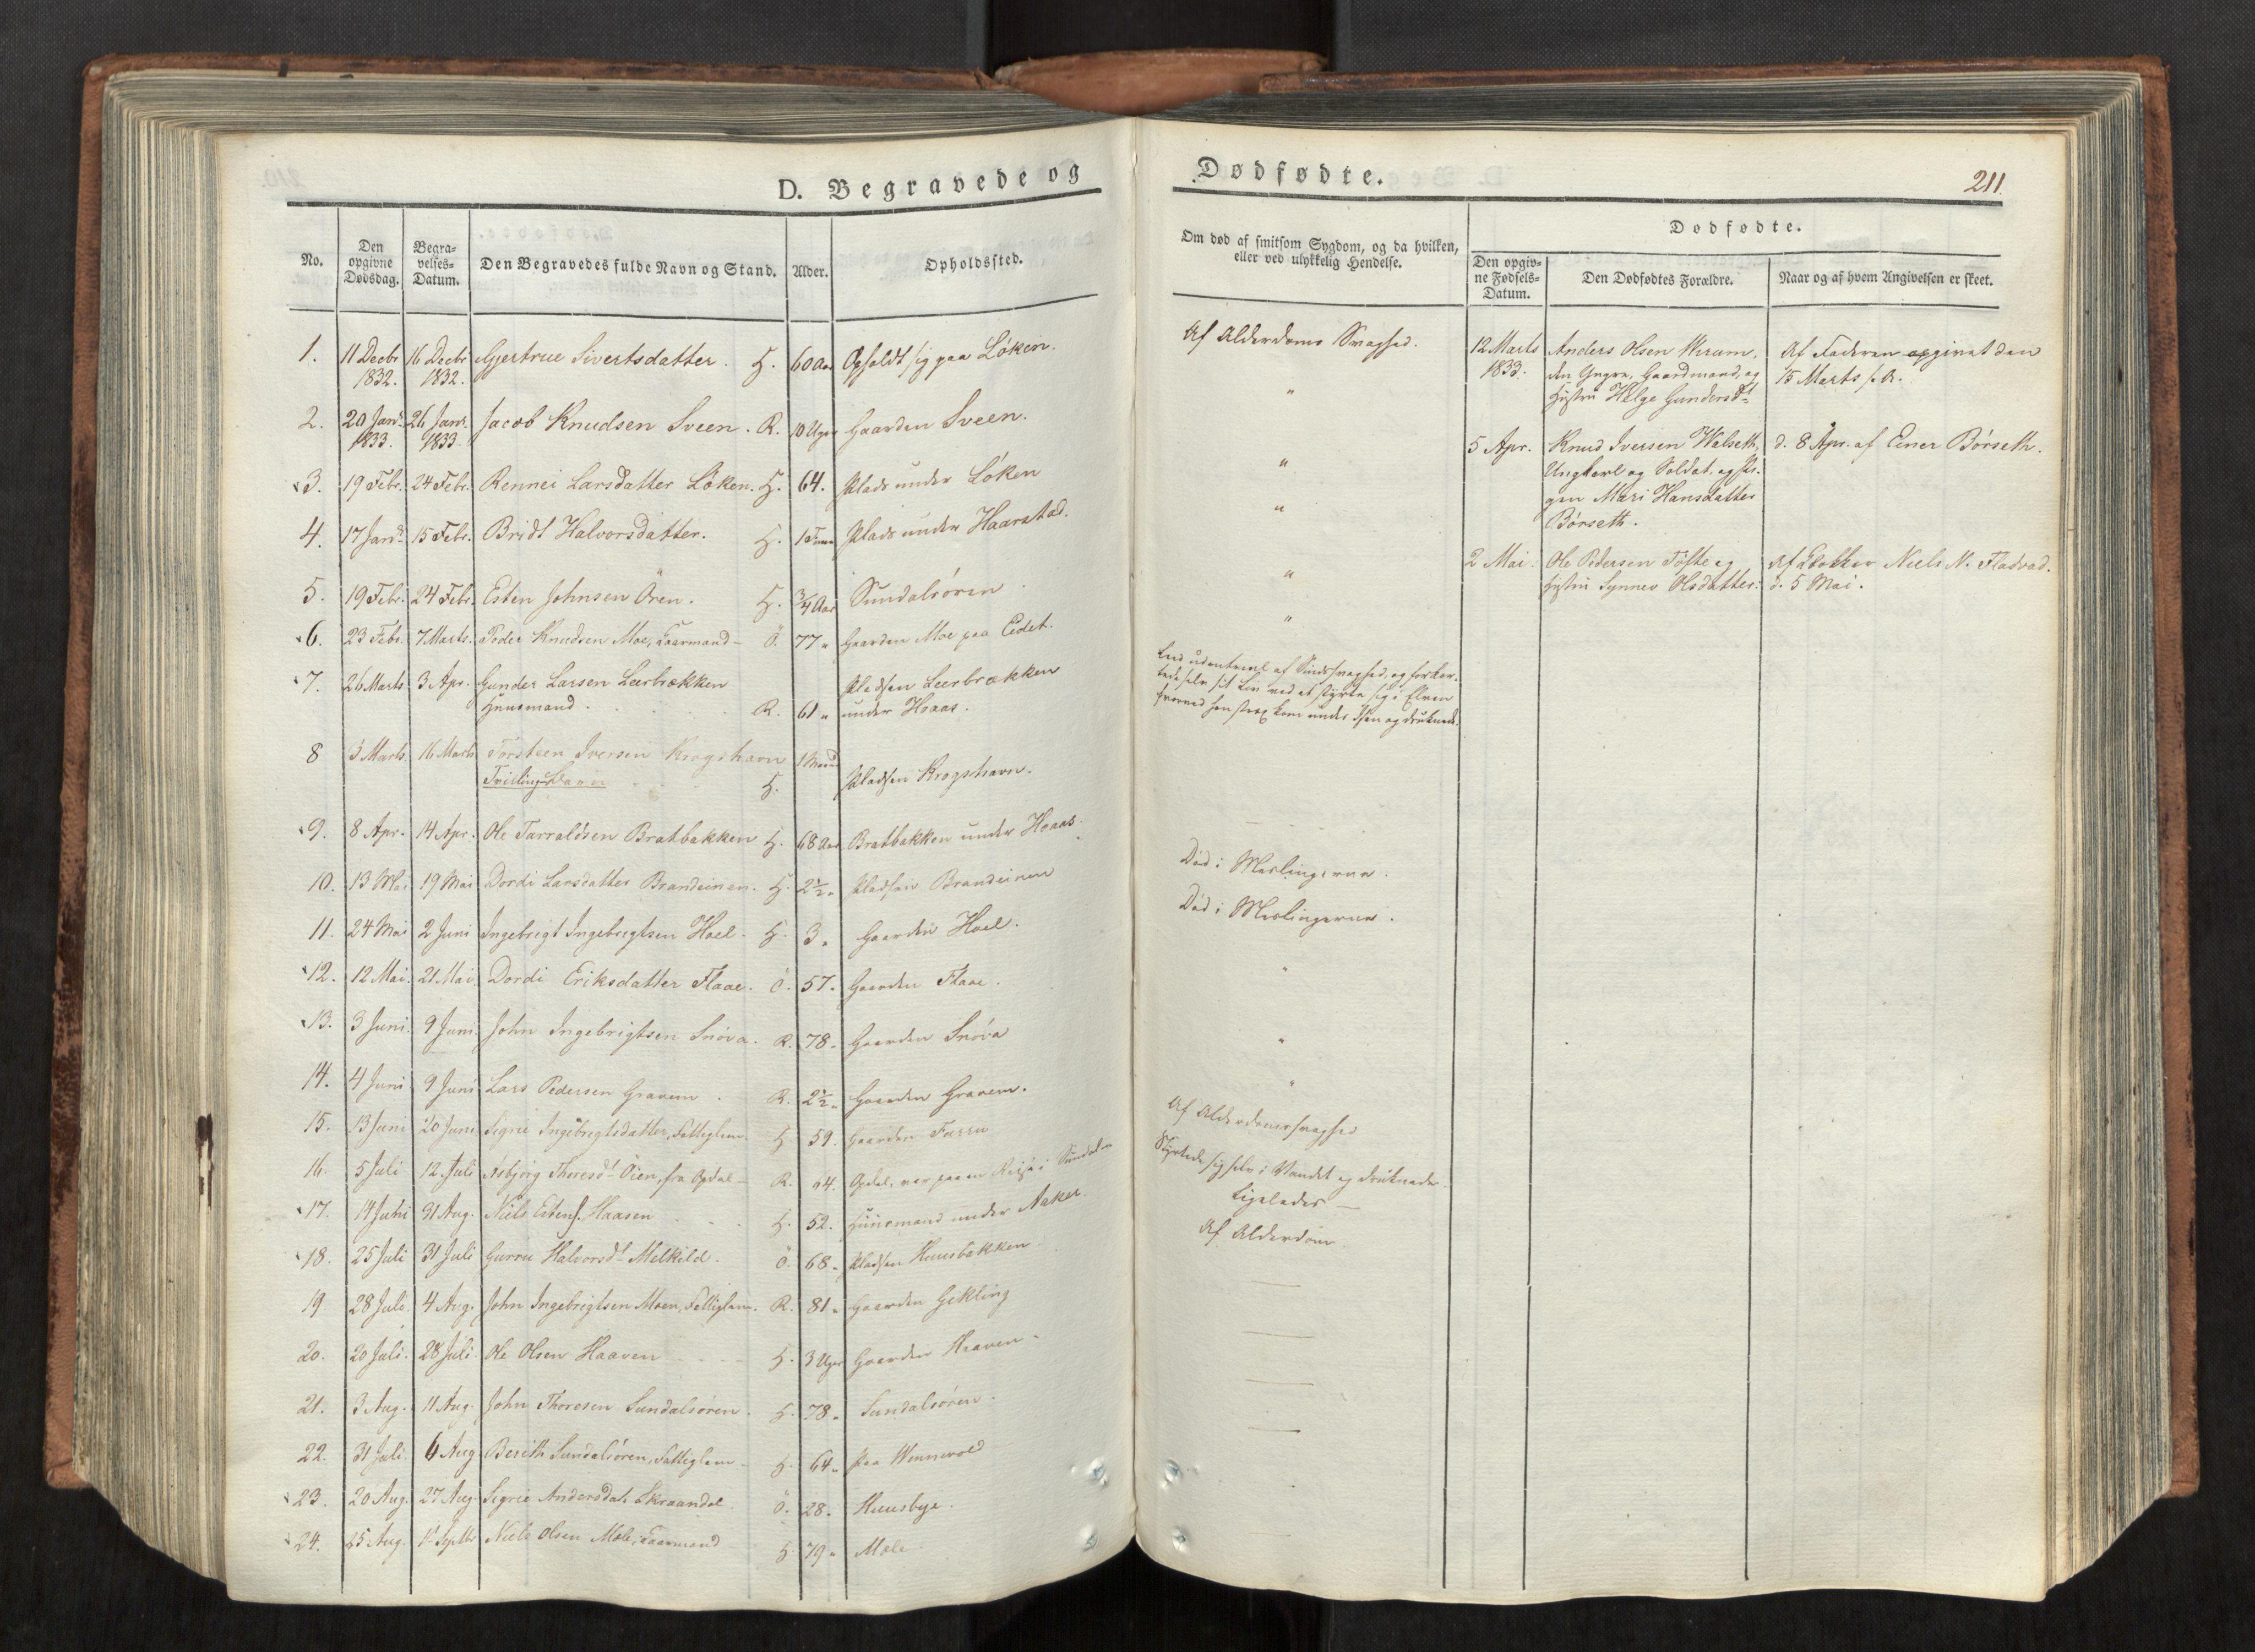 D. Begravede og
No.
Den opgivne Dødsdag.
Begra-velses-Datum.
Den Begravedes fulde Navn og Stand.
Alder.
Opholdssted.
1. 11 Decbr 1832. 16 Decbr 1832. Gjertrue Sivertsdatter. H. 60 Aar Opholdt sig paa Löken.
2. 20 Janr. 1833. 26 Janr. 1833. Jacob Knudsen Sveen. R. 10 Uger Gaarden Sveen.
3. 19 Febr. 24 Febr. Rennei Larsdatter Löken. H. 64. Plads under Löken
4. 17 Janr. 15 Febr. Bridt Halvorsdatter. H. Plads under Haarstad.
5. 19 Febr. 24 Febr. Esten Johnsen Ören. H. 3/4 Aar Sundalsören
6. 23 Febr. 7 Marts. Peder Knudsen Moe, Ö. 77 " Gaarden Moe paa Eidet.
7. 26 Marts 3 Apr. Gunder Larsen Leerbrækken
Huusmand. R. 61 " Pladsen Leerbrækken
under Hoaas.
8 3 Marts 16 Marts Torsteen Iversen Krogshavn 1 Maaned
Tvillingebarn H. Pladsen Krogshavn.
9. 8 Apr. 14 Apr. Ole Tarraldsen Bratbakken H. 68 Aar Bratbakken under Hoaas.
10. 13 Mai 19 Mai Dordi Larsdatter Brandeinen. H. 2 1/2 " Pladsen Brandeinen
11. 24 Mai 2 Juni Ingebrigt Ingebrigtsen Hoel. H. 3 " Gaarden Hoel.
12. 12 Mai. 21 Mai Dordi Eriksdatter Flaae. Ö. 57 " Gaarden Flaae.
13. 3 Juni. 9 Juni. John Ingebrigtsen Snöva. R. 78 " Gaarden Snöva
14. 4 Juni 9 Juni Lars Pedersen Gravem. R. 2 1/2 " Gaarden Gravem.
15. 13 Juni 20 Juni Sigrie Ingebrigtsdatter, Fattiglem. H. 59. Gaarden Furru
16. 5 Juli 12 Juli Asbjörg Thoresdt. Öien, fra Opdal R. Opdal, var paa en Reise i Sundalen
17. 14 31 Aug. Niels Estens. Haasen H. 52. Huusmand under Aaker.
18. 25 Juli 31 Juli Gurru Halvorsdt. Melkild. Ö. 68 " Pladsen Huusbakken
19 28 Juli 4 Aug. John Ingebrigtsen Moen, Fattiglem. R. 81 " Gaarden Gikling
20. 20 Juli. 28 Juli Ole Olsen Haaven H. 3 Uger Gaarden Haaven.
21. 3 Aug. 11 Aug. John Thoresen Sundalsören. H. 78 " Sundalsören.
22. 31 Juli 6 Aug Bereth Sundalsören, Fattiglem H. 64 " paa Vennevold
23. 20 Aug. 27 Aug. Sigrie Andersdat. Skraandal Ö. 28 " Huusbye.
24. 25 Aug. 1 Septbr Niels Olsen Mæle, H. 79 " Mæle
Dødfødte.
211.
Om død af smitsom Sygdom, og da hvilken, eller ved ulykkelig Hendelse.
Dødfødte.
Den opgiv-ne Fødsels-Datum.
Den Dødfødtes Forældre.
Naar og af hvem Angivelsen er skeet.
Af Alderdoms Svaghed.
"
"
"
"
"
Leed udentvivl af Sindssvaghed og forkor-
tede selv sit Liv ved at styrte sig i Elven
hvorved han strax kom under Isen og druknede.
Död i Meslingerne.
Död i Meslingerne.
"
"
"
Af Alderdomssvaghed
Styrtede sig selv i Vandet og druknede.
Ligeledes —
Af Alderdom
12 Marts 1833. Anders Olsen
den Yngre, Gaardmand, og
Hustru Helge Gundersdt.
Af Faderen opgivet den
15 Marts s. A.
5 Apr. Knud Iversen Walseth,
Ungkarl og Soldat, og Pi-
gen Mari Hansdatter
Börseth.
d. 8 Apr. af Einer Börseth.
2 Mai. Ole Pedersen Töfte og
Hustru Synnev Olsdatter.
Af Klokker Niels N. Flædvad.
d. 5 Mai.